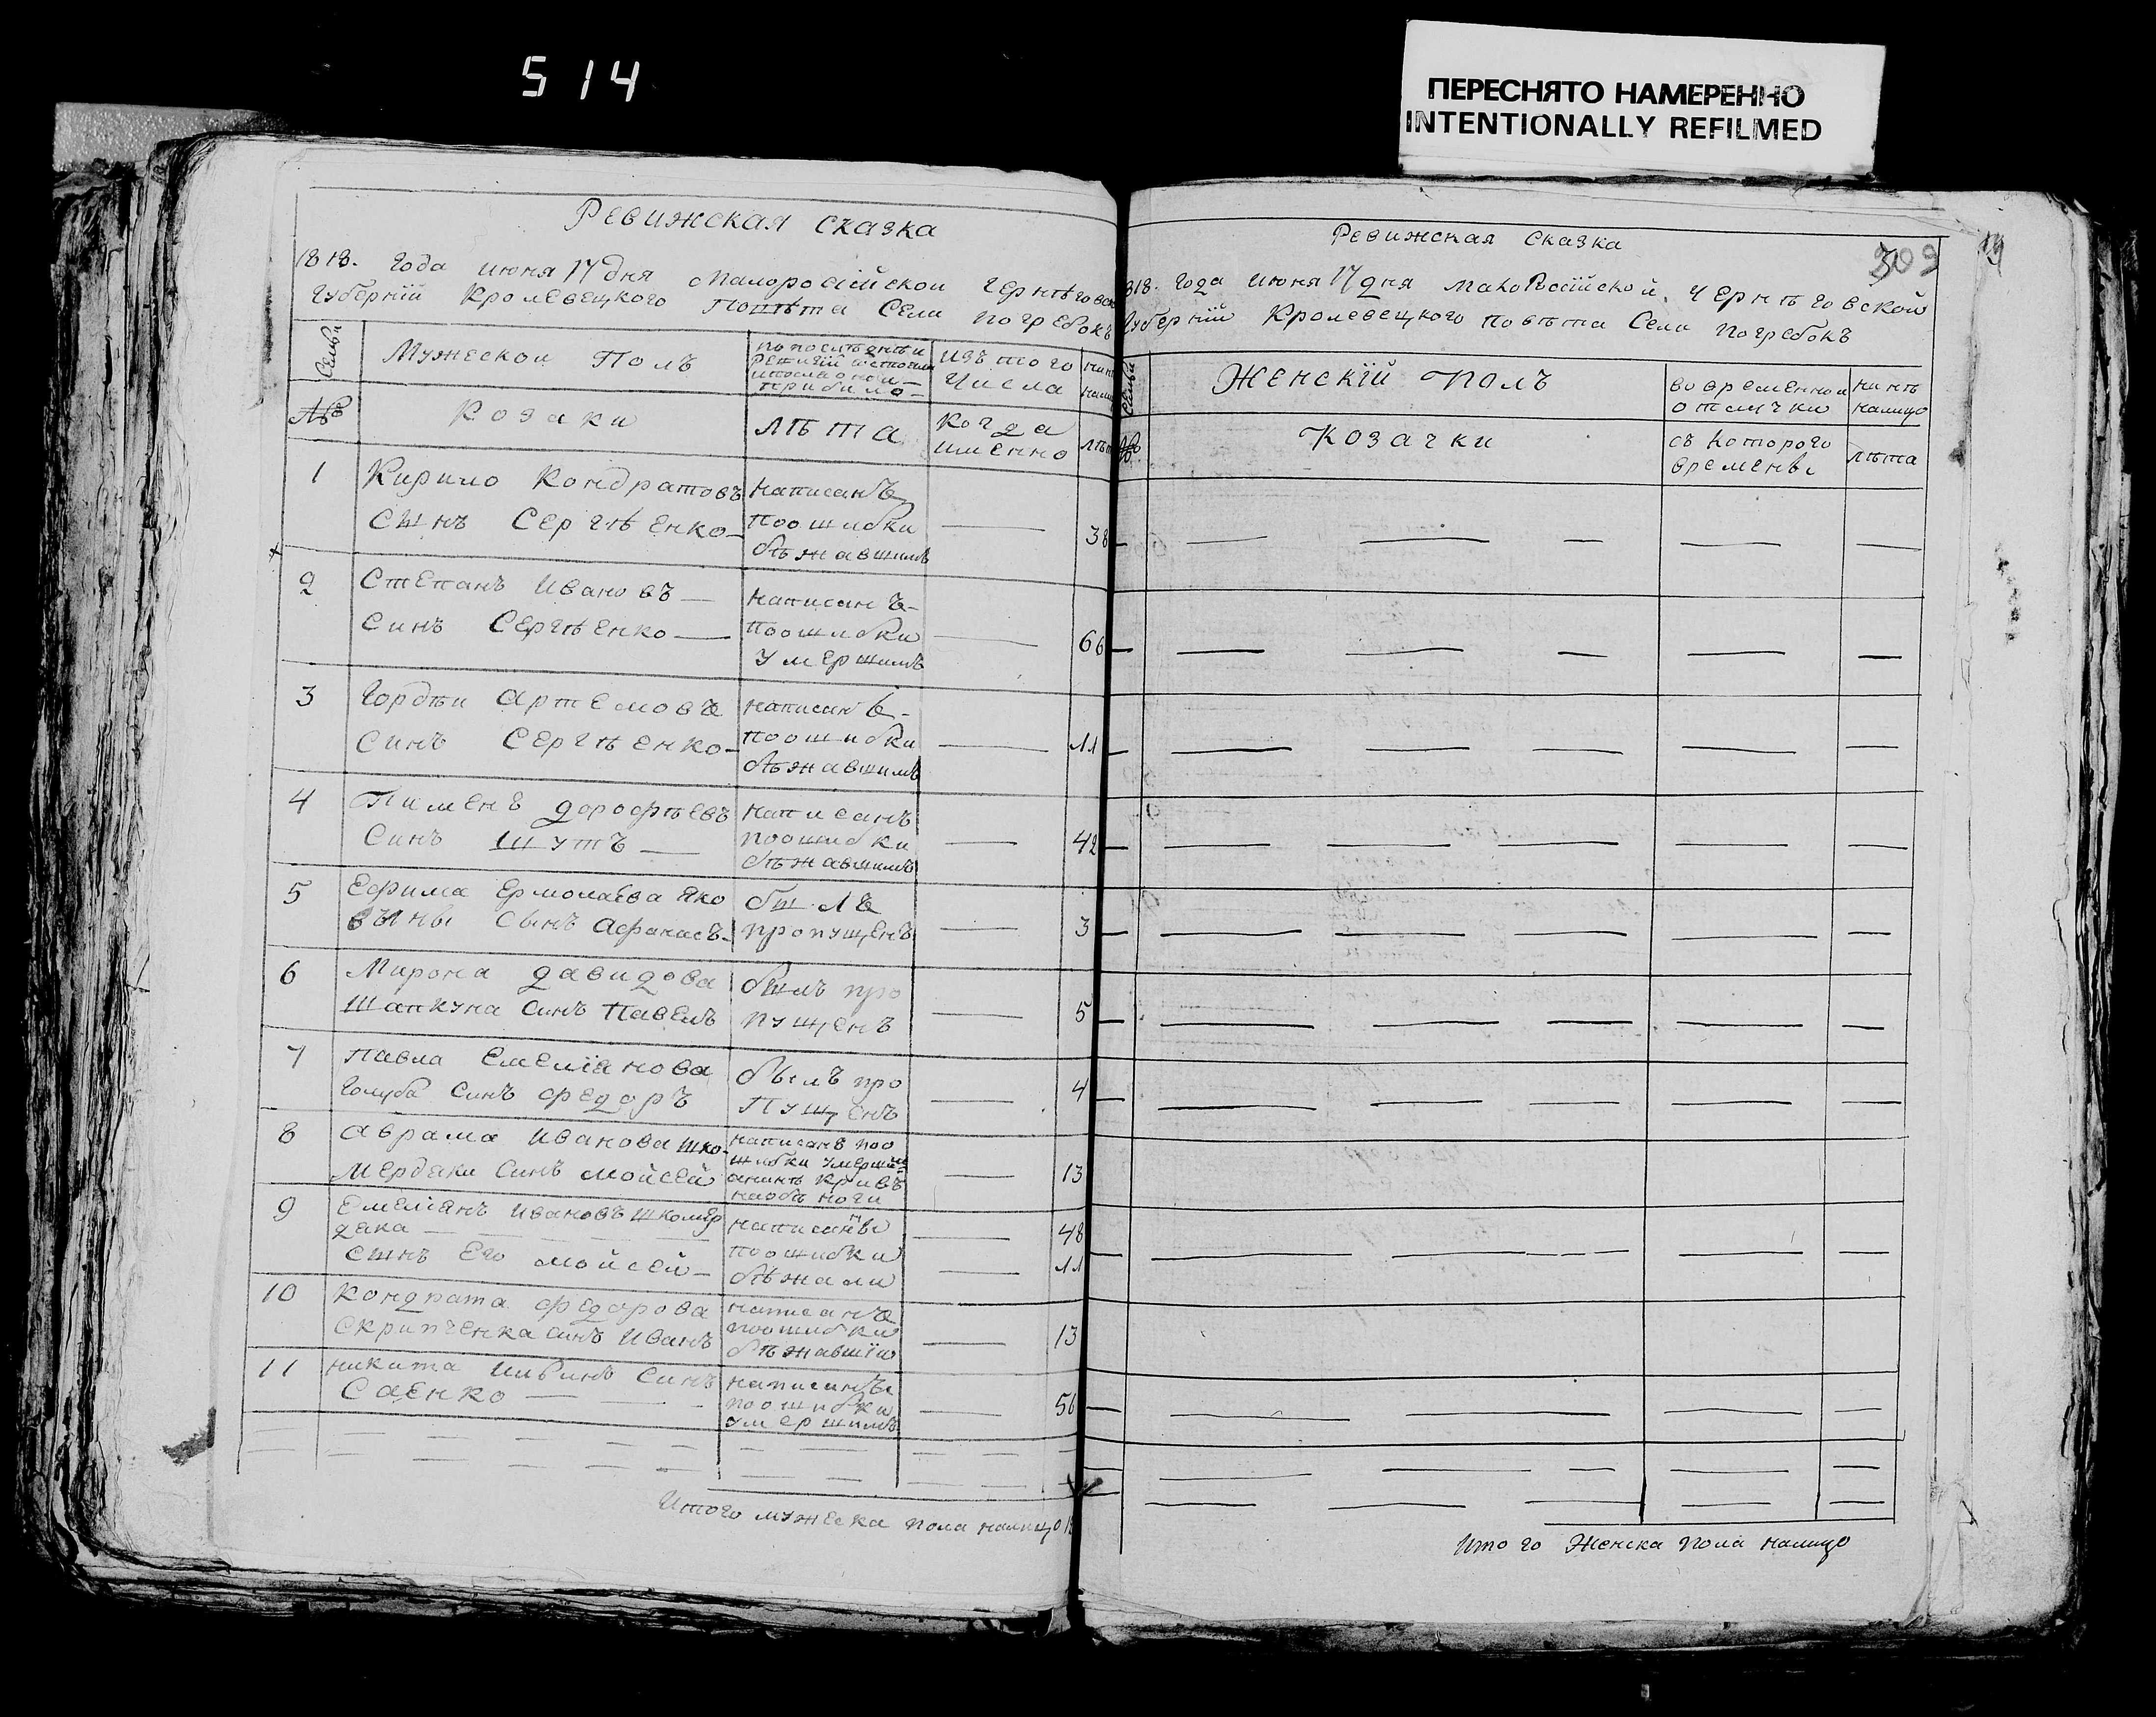 514
ПЕРЕСНЯТО НАМЕРЕННО
INTENTIONALLY REFILMED
Ревижская сказка
1818. Года июня 17 дня Малоросiйской Чернѣговск
Губернiй Кролевецкого Повѣта Села Погребокъ
Семьи
Мужескои Полъ
По послѣднѣи
Изъ того
Числа
№
Козаки
Лѣта
Когда
Именно
1
Кирило Кондратовъ
Сынъ Сергѣенко
написанъ
по ошибки
бѣжавшимъ
38
2
Степанъ Ивановъ
Синъ Сергѣенко
написанъ
по ошибки
умершимъ
66
3
Гордѣи Артемовъ
Синъ Сергѣенко
написанъ
по ошибки
бѣжавшимъ
11
4
Пименъ Дорофѣевъ
Синъ Шутъ
написанъ
по ошибки
бѣжавшимъ
42
5
Ефима Ермолаева Яко
Сынъ Афанасъ
былъ
пропущенъ
3
6
Мирона Давидова
Шапкуна Синъ Павелъ
былъ про
пущенъ
5
7
Павла Емелiанова
Голуба Синъ Федоръ
былъ про
пущенъ
4
8
Аврама Иванова Шко
мердяки Синъ Мойсей
написанъ по о
шибки умершим
анинѣ кривъ
на обѣ ноги
13
9
Емелiянъ Ивановъ Шкомер
дяка
Сынъ Его Мойсей
написаны
по ошибки
бѣжали
48
11
10
Кондрата Федорова
Скрипченка синъ Иванъ
написанъ
по ошибки
бѣжавшiи
13
11
Никита Синъ
Саенко
написанъ
по ошибки
умершимъ
56
Итого мужеска пола налицо
Ревижская Сказка
309
19
818. Года Июня 17 дня Малоросiйской. Чернѣговской
Губернiй Кролевецкого Повѣта Села Погребокъ
Семьи
Женскiй Полъ
во временнои
отлучки
нинѣ
налицо
№
Козачки
съ которого
временъ
лѣта
Итого Женска пола налицо